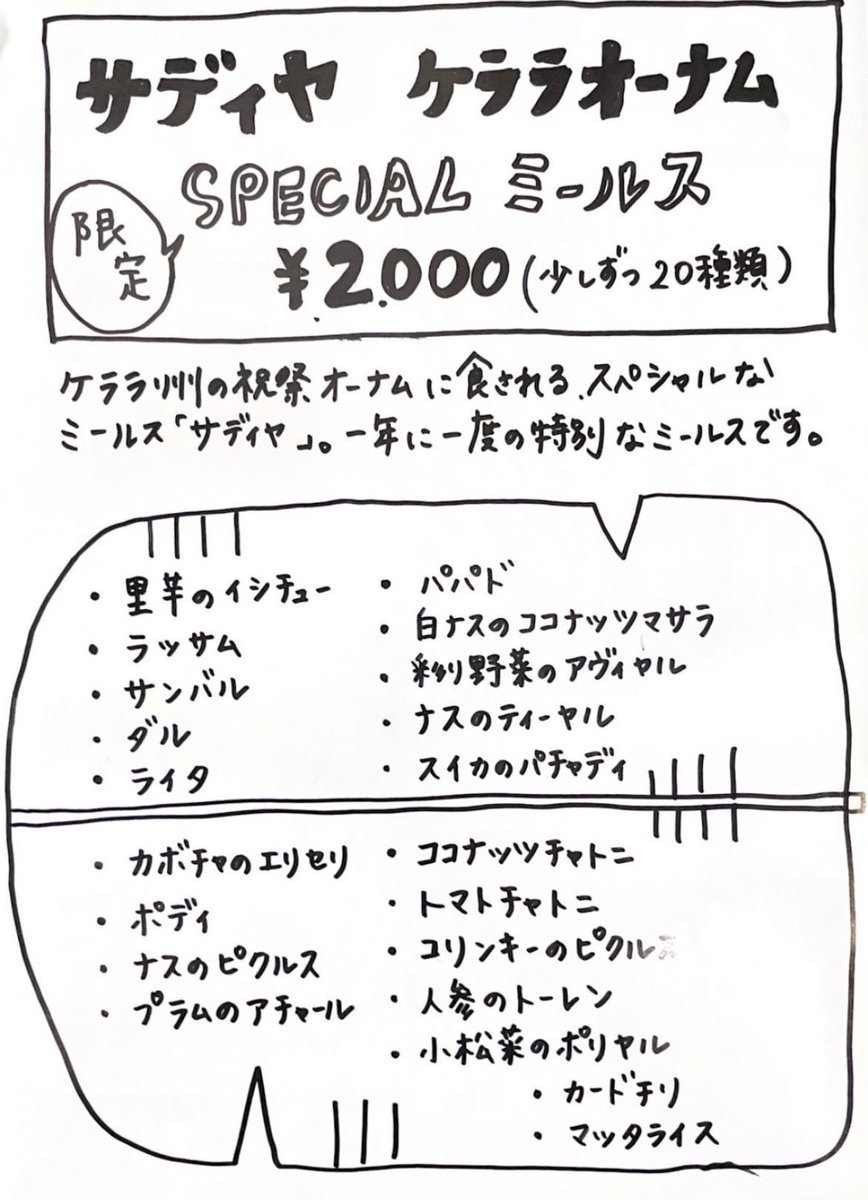 サディヤ ケララオーナム
SPECIAL ミールス
限定
¥2.000(少しずつ20種類)
ケララ州の祝祭オーナムに食される、スペシャルな
ミールス「サディヤ」。一年に一度の特別なミールスです。
・里芋のイシチュー
・ラッサム
・サンバル
・ダル
・ライタ
・パパド
・白ナスのココナッツマサラ
・彩り野菜のアヴィヤル
・ナスのティーヤル
・スイカのパチャディ
・カボチャのエリセリ
・ポディ
・ナスのピクルス
・プラムのアチャール
・ココナッツチャトニ
・トマトチャトニ
・コリンキーのピクルス
・人参のトーレン
・小松菜のポリヤル
・カードチリ
・マッタライス